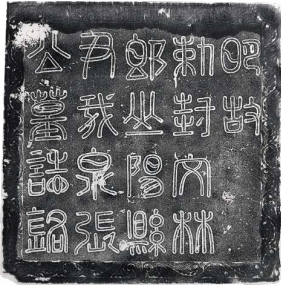 明故
勅封文林
郎山陽縣
尹我泉張
公墓誌銘